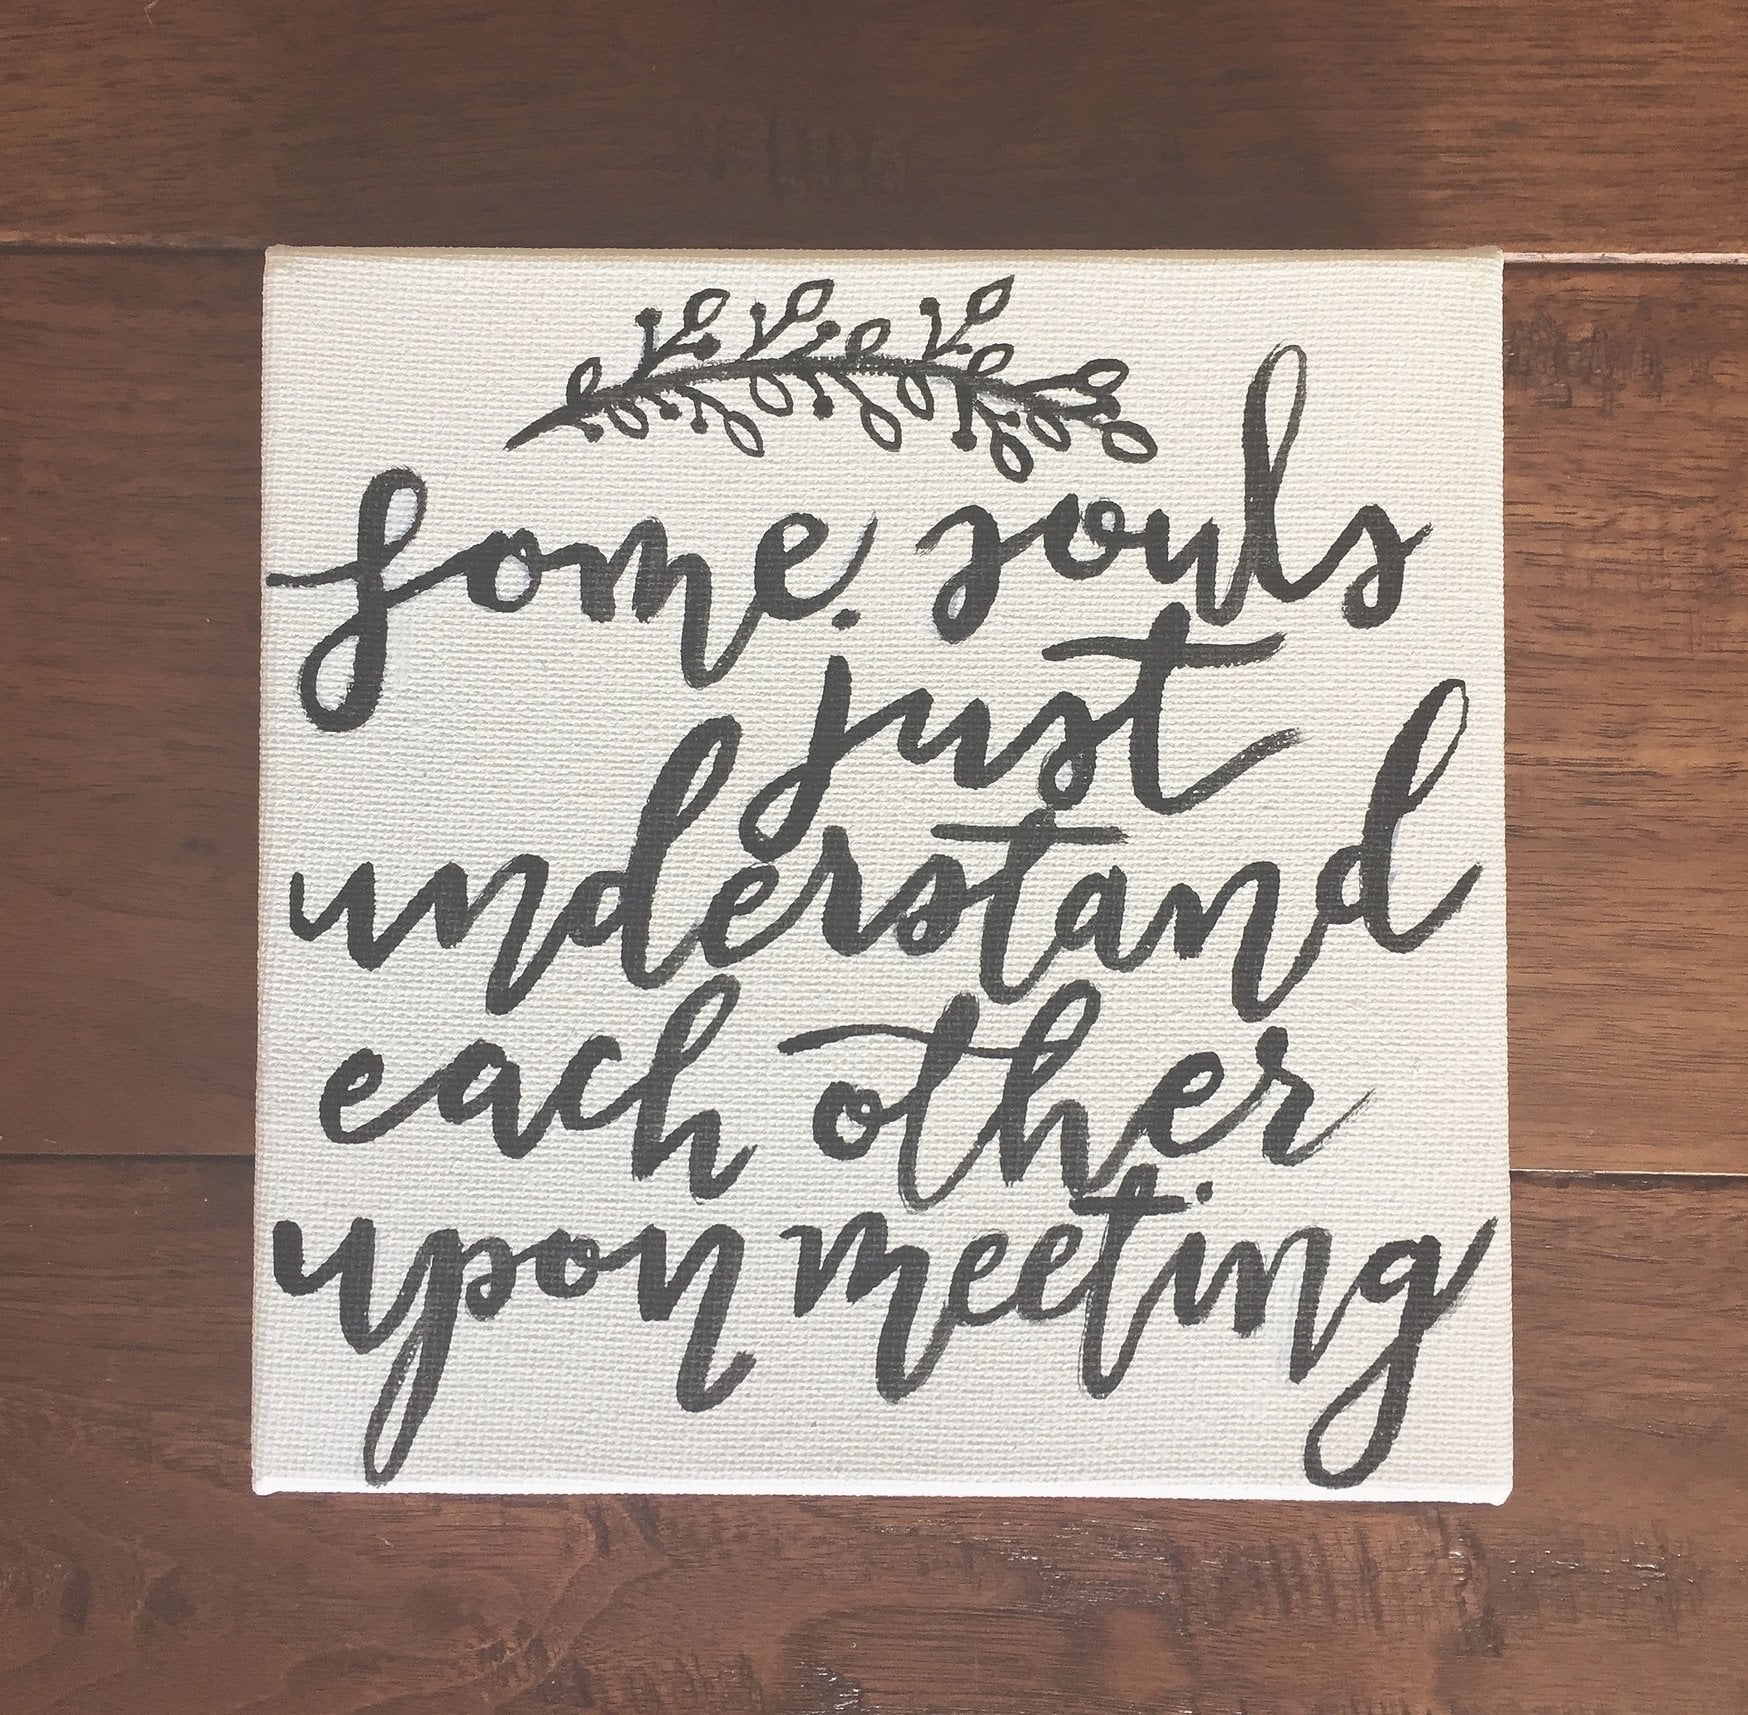 some souls
just
understand
each other
upon meeting